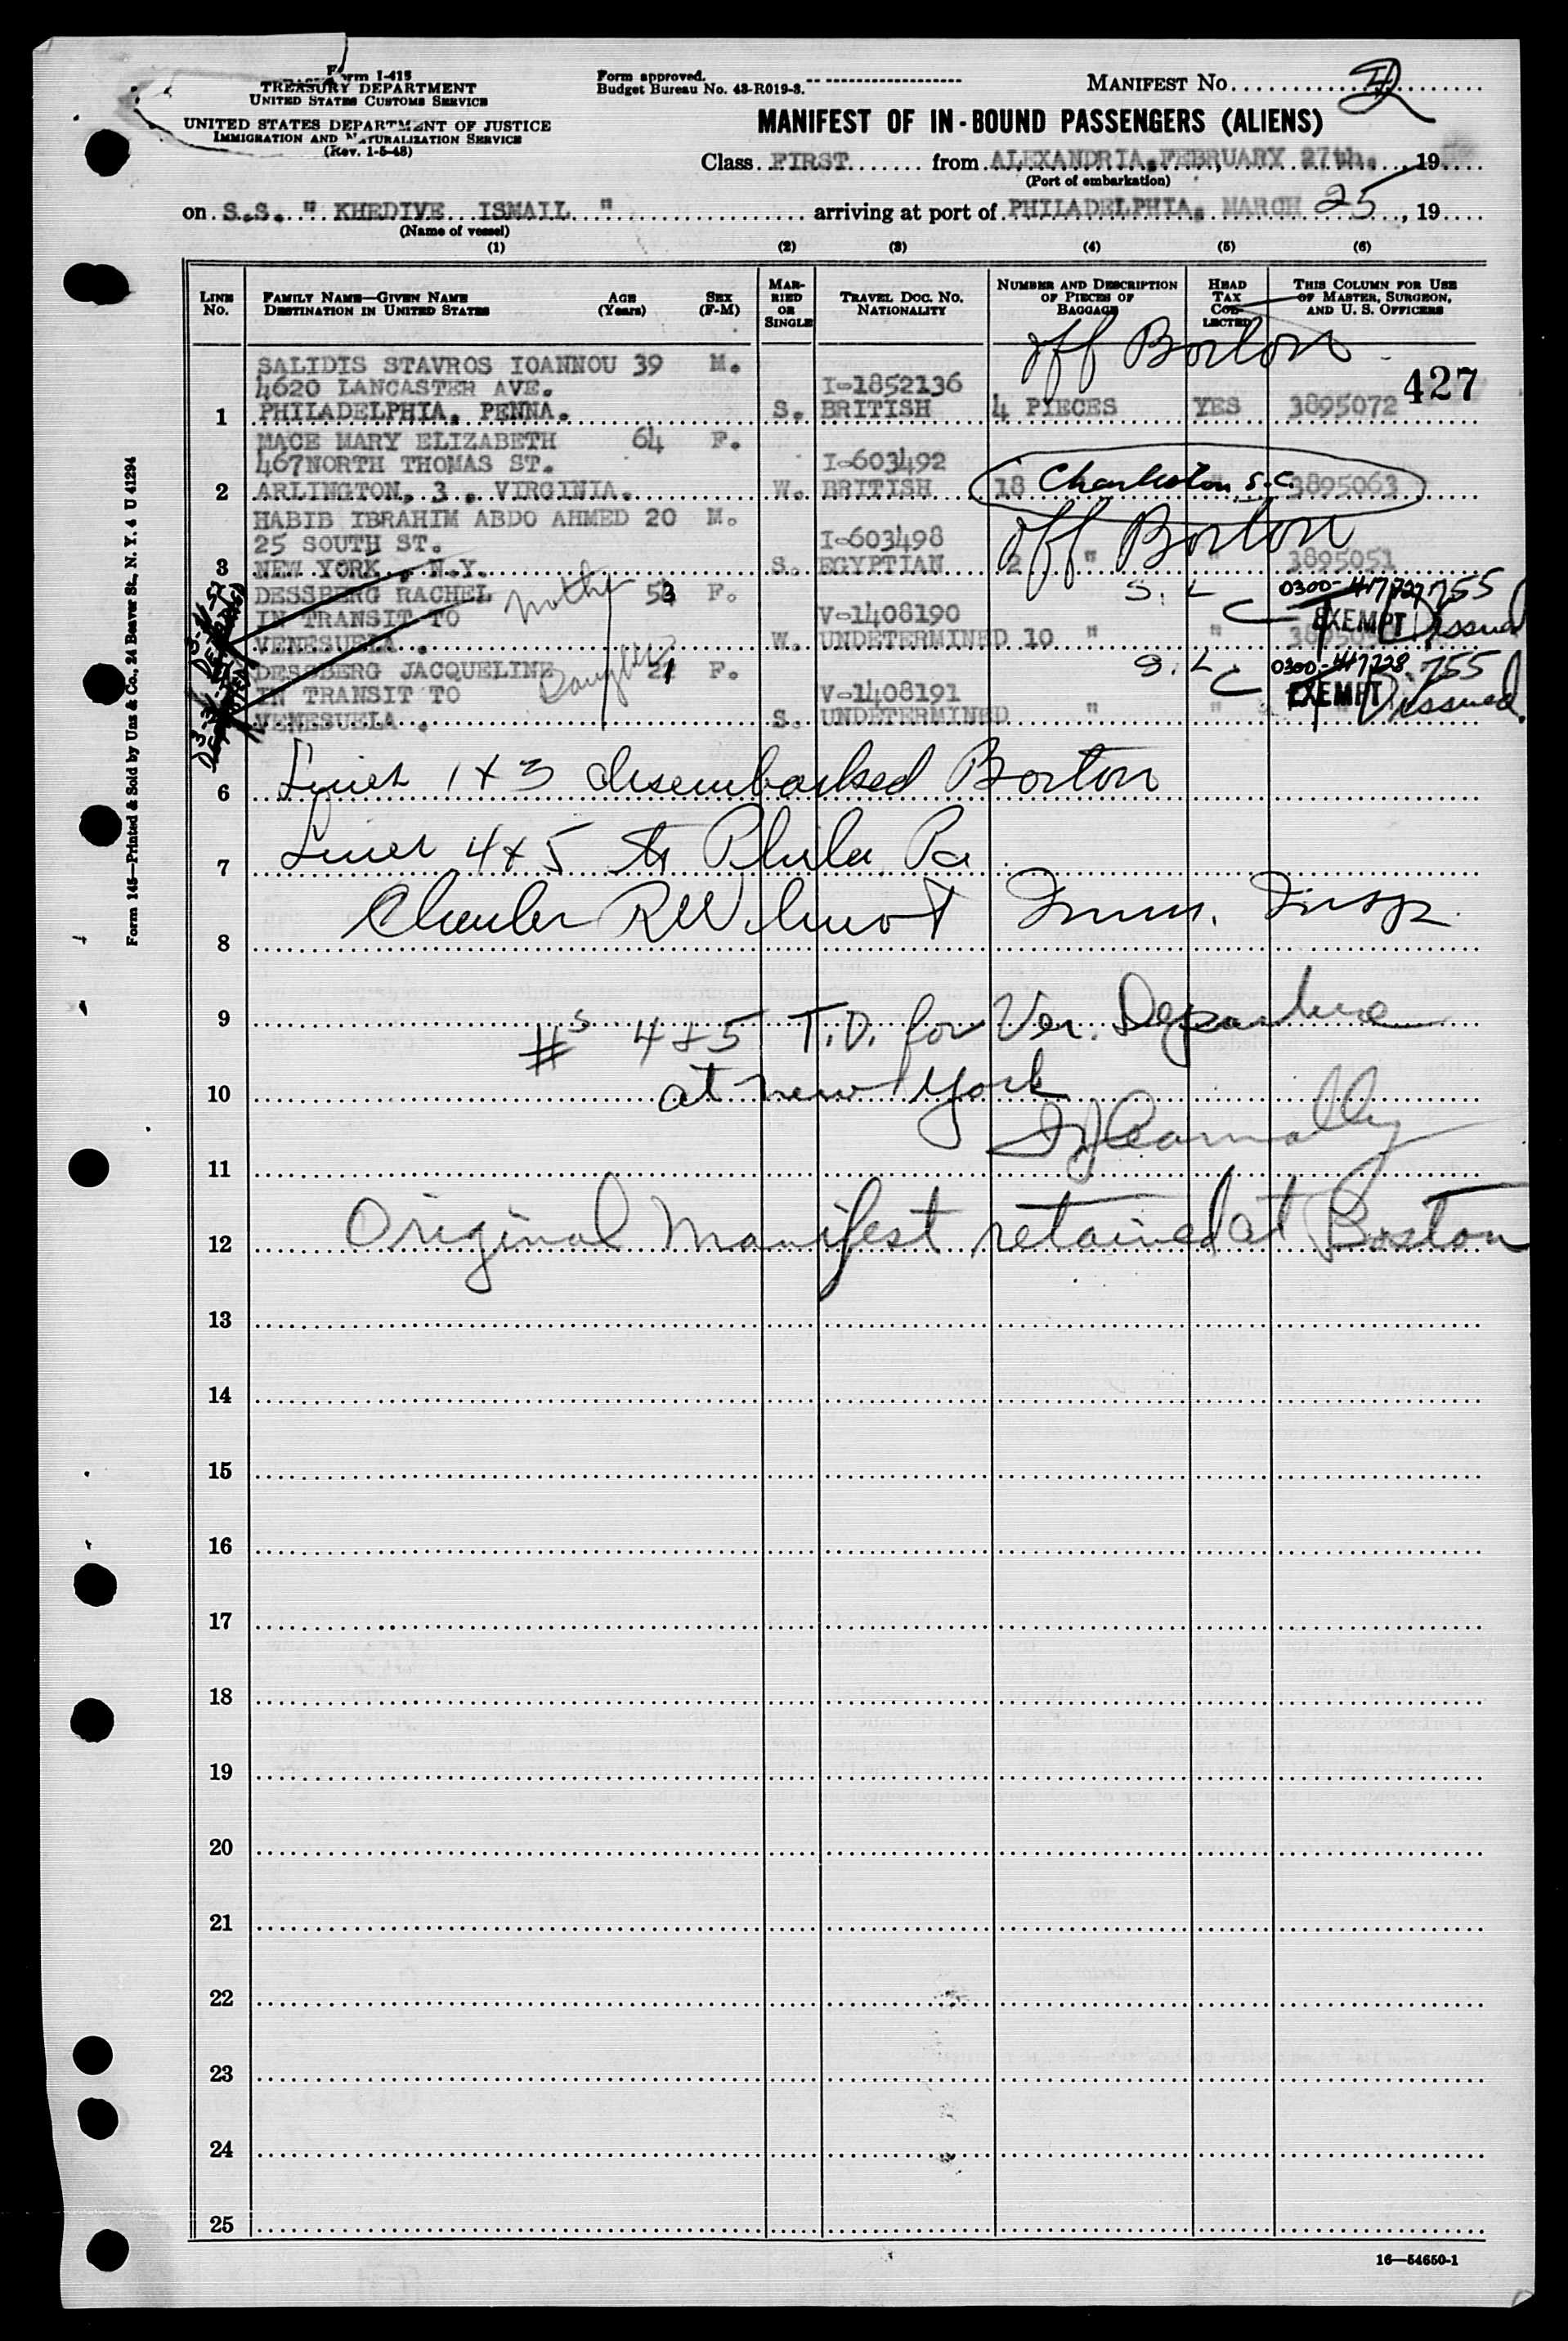 Form I-415
TREASURY DEPARTMENT
UNITED STATES CUSTOMS SERVICE
UNITED STATES DEPARTMENT OF JUSTICE
IMMIGRATION AND NATURALIZATION SERVICE
(Rev. 1-5-48)
Form approved.
Budget Bureau No. 43-R019-3.
MANIFEST NO.
MANIFEST OF IN-BOUND PASSENGERS (ALIENS)
Class FIRST from ALEXANDRIA, FEBRUARY 27th. , 19
(Port of embarkation)
on S.S. " KHEDIVE ISMAIL " arriving at port of PHILADELPHIA, MARCH 25, 19
(Name of vessel)
(1) (2) (3) (4) (5) (6)
LINE NO. FAMILY NAME—GIVEN NAME DESTINATION IN UNITED STATES AGE (Years) SEX (F-M) MARRIED OR SINGLE TRAVEL DOC. NO. NATIONALITY NUMBER AND DESCRIPTION OF PIECES OF BAGGAGE HEAD TAX COLLECTED THIS COLUMN FOR USE OF MASTER, SURGEON, AND U. S. OFFICERS
off Boston
SALIDIS STAVROS IOANNOU 39 M.
4620 LANCASTER AVE. I-1852136 427
1 PHILADELPHIA, PENNA. S. BRITISH 4 PIECES YES 3895072
MACE MARY ELIZABETH 64 F.
467NORTH THOMAS ST. I-603492
2 ARLINGTON, 3 . VIRGINIA. W. BRITISH 18 Charleston S.C. 3895063
HABIB IBRAHIM ABDO AHMED 20 M.
25 SOUTH ST. I-603498 off Boston
3 NEW YORK , N.Y. S. EGYPTIAN 2 " " 3895051
DESSBERG RACHEL Mother 53 F. S. L 0300-417727 755
IN TRANSIT TO V-1408190 EXEMPT
VENESUELA . W. UNDETERMINED 10 " "
DESSBERG JACQUELINE Daughter 21 F. S. L. 0300-417728 755
IN TRANSIT TO V-1408191 EXEMPT
VENESUELA . S. UNDETERMINED " "
6 Lines 1 + 3 disembarked Boston
7 Lines 4 + 5 to Phila, Pa
8 Charles R Wilmot Imm. Insp.
9 #s 4 + 5 T.D. for Ven. Departure
10 at New York
11
12 Original Manifest retained at Boston
13
14
15
16
17
18
19
20
21
22
23
24
25
16—54650-1
Form 145—Printed & Sold by Unz & Co., 24 Beaver St., N. Y. 4 U 41294